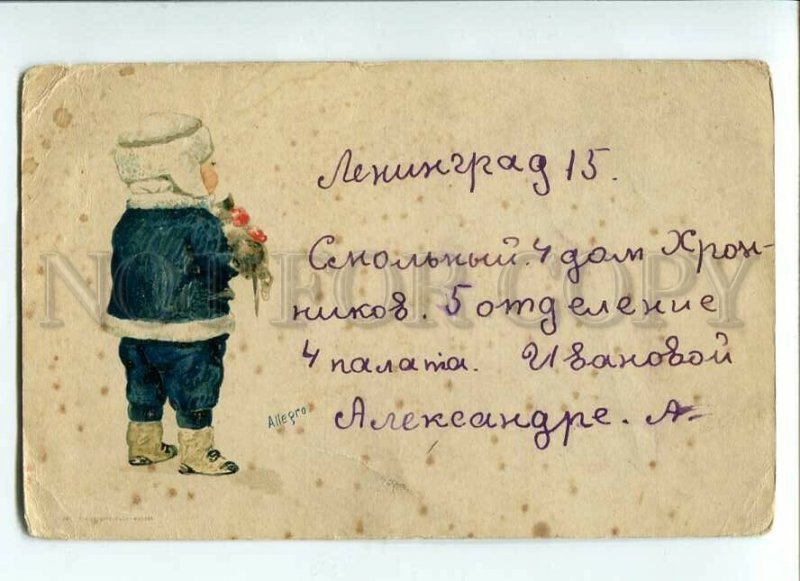 Ленинград 15.
Смольный. 4 дом Хрон-
ников. 5 отделение
4 палата. Ивановой
Александре. А
Allegro
NOT FOR COPY